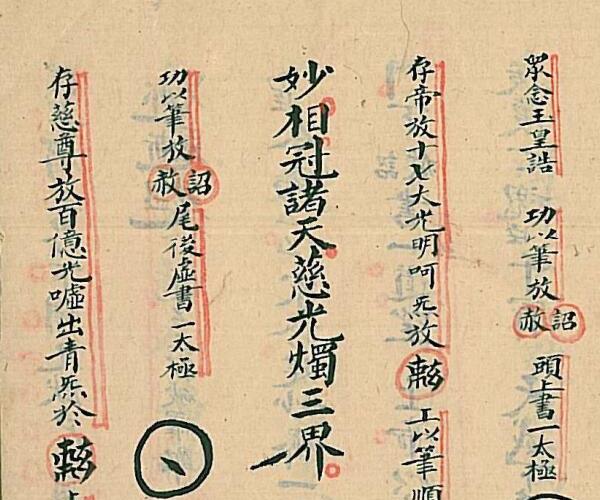 眾念玉皇誥 功以筆放赦詔頭上書一太極
存帝放十七大光明呵炁放 工以筆順
妙相冠諸天慈光燭三界
功以筆放赦詔尾後虛書一太極
存慈尊放百億光噓出青炁於